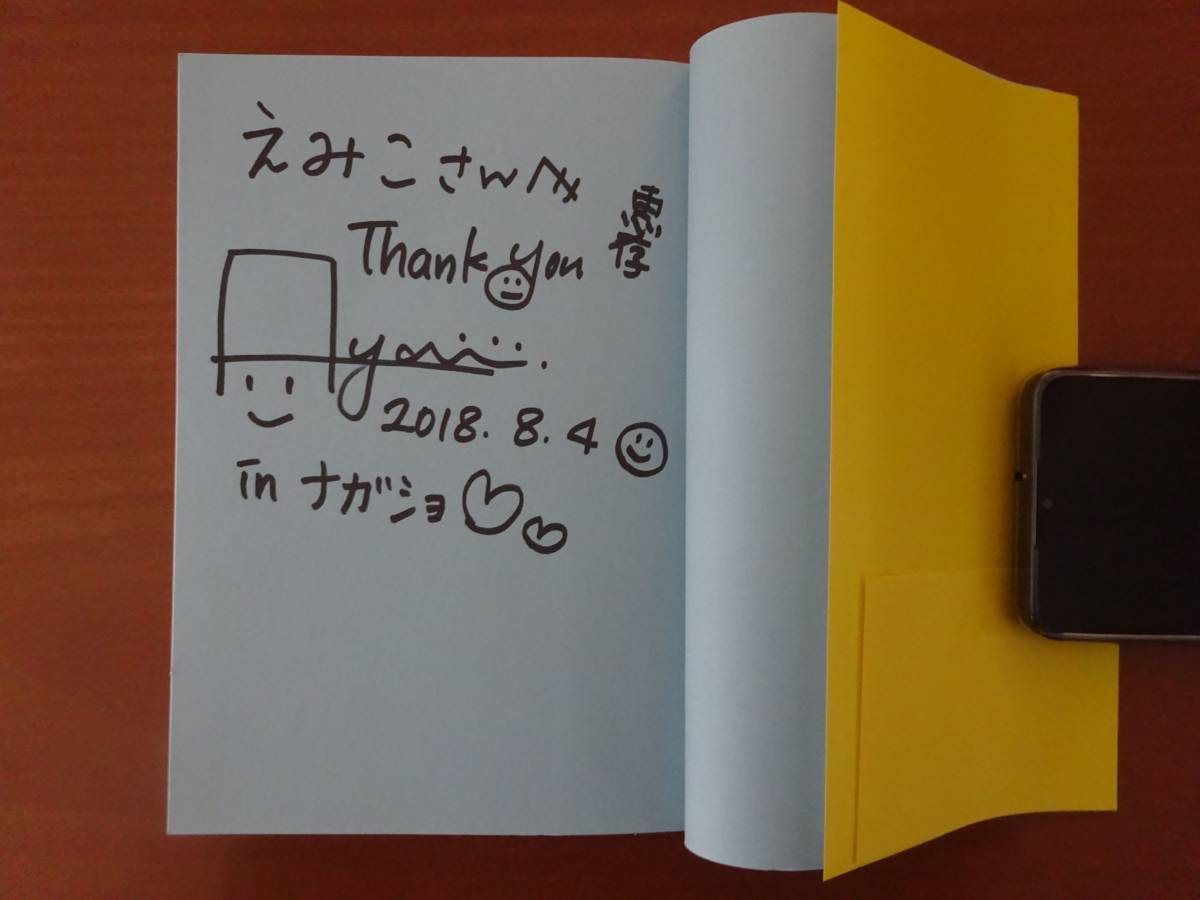 えみこさんへ
Thank you
2018. 8. 4
in ナガショ